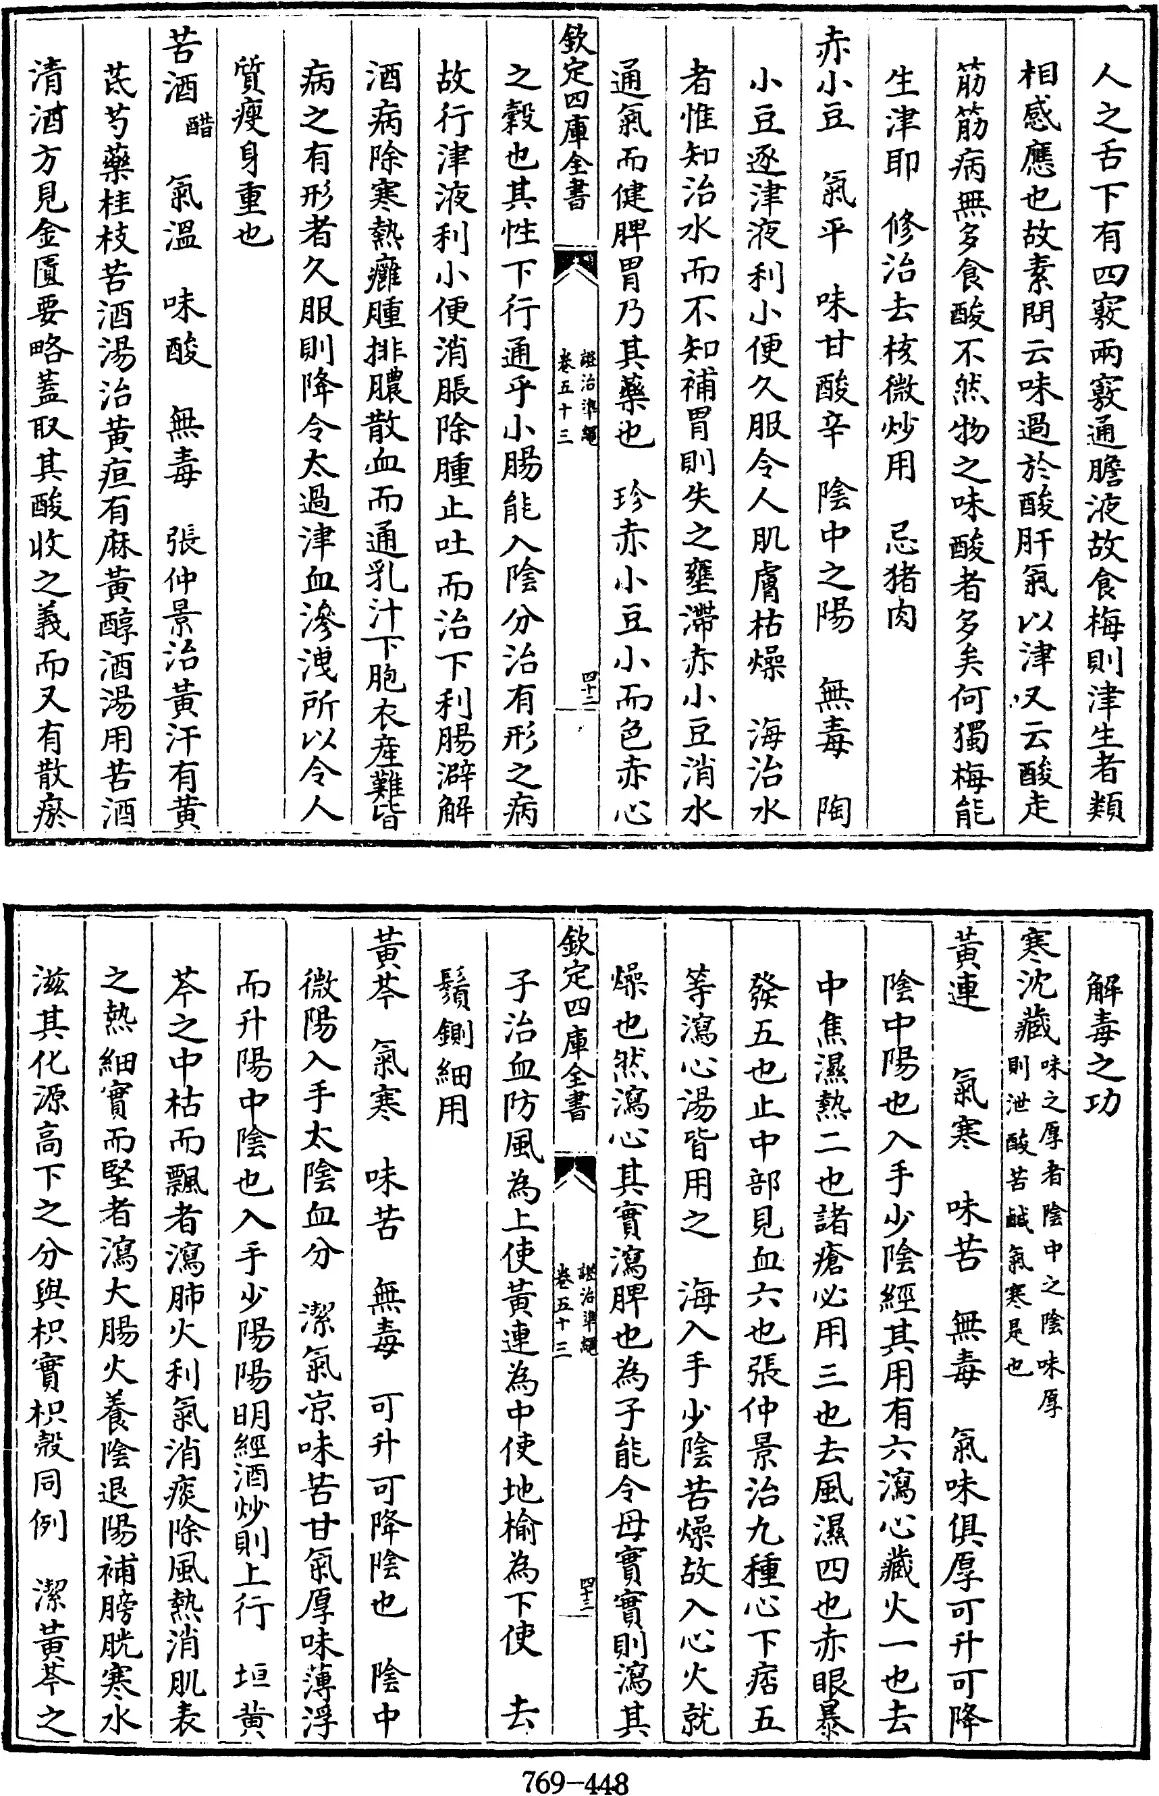 人之舌下有四竅兩竅通膽液故食梅則津生者類
相感應也故素問云味過於酸肝氣以津又云酸走
筋筋病無多食酸不然物之味酸者多矣何獨梅能
生津耶　修治去核微炒用　忌猪肉
赤小豆　氣平　味甘酸辛　陰中之陽　無毒　陶
小豆逐津液利小便久服令人肌膚枯燥　海治水
者惟知治水而不知補胃則失之壅滯赤小豆消水
通氣而健脾胃乃其藥也　珍赤小豆小而色赤心
欽定四庫全書
證治準繩
卷五十三
四十二
之穀也其性下行通乎小腸能入陰分治有形之病
故行津液利小便消脹除腫止吐而治下利腸澼解
酒病除寒熱癰腫排膿散血而通乳汁下胞衣産難皆
病之有形者久服則降令太過津血滲洩所以令人
質瘦身重也
苦酒醋　氣溫　味酸　無毒　張仲景治黃汗有黃
芪芍藥桂枝苦酒湯治黃疸有麻黃醇酒湯用苦酒
清酒方見金匱要略蓋取其酸收之義而又有散瘀
解毒之功
寒沈藏味之厚者陰中之陰味厚
則泄酸苦鹹氣寒是也
黃連　氣寒　味苦　無毒　氣味俱厚可升可降
陰中陽也入手少陰經其用有六瀉心臟火一也去
中焦濕熱二也諸瘡必用三也去風濕四也赤眼暴
發五也止中部見血六也張仲景治九種心下痞五
等瀉心湯皆用之　海入手少陰苦燥故入心火就
燥也然瀉心其實瀉脾也為子能令母實實則瀉其
欽定四庫全書
證治準繩
卷五十三
四十三
子治血防風為上使黃連為中使地榆為下使　去
鬚鍘細用
黃芩　氣寒　味苦　無毒　可升可降陰也　陰中
微陽入手太陰血分　潔氣涼味苦甘氣厚味薄浮
而升陽中陰也入手少陽陽明經酒炒則上行　垣黃
芩之中枯而飄者瀉肺火利氣消痰除風熱消肌表
之熱細實而堅者瀉大腸火養陰退陽補膀胱寒水
滋其化源高下之分與枳實枳殼同例　潔黃芩之
769-448